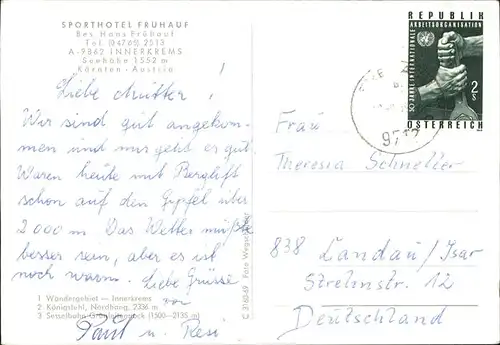 SPORTHOTEL FRÜHAUF
Bes. Hans Frühauf
Tel. (04765) 2513
A-9862 INNERKREMS
Seehöhe 1552 m
Kärnten - Austria
Liebe Mutter!
Wir sind gut angekom-
men und mir geht es gut.
Waren heute mit Berglift
schon auf den Gipfel über
2000 m. Das Wetter müßte
besser sein, aber es ist
noch warm. Liebe Grüsse
von
Paul u. Resi
1 Wandergebiet — Innerkrems
2 Königstuhl, Nordhang, 2336 m
3 Sesselbahn (1500—2135 m)
C 3160-69 Foto
REPUBLIK
50 JAHRE INTERNATIONALE
ARBEITSORGANISATION
2 S
ÖSTERREICH
Frau
Theresia Schneller
838 Landau/Isar
12
Deutschland